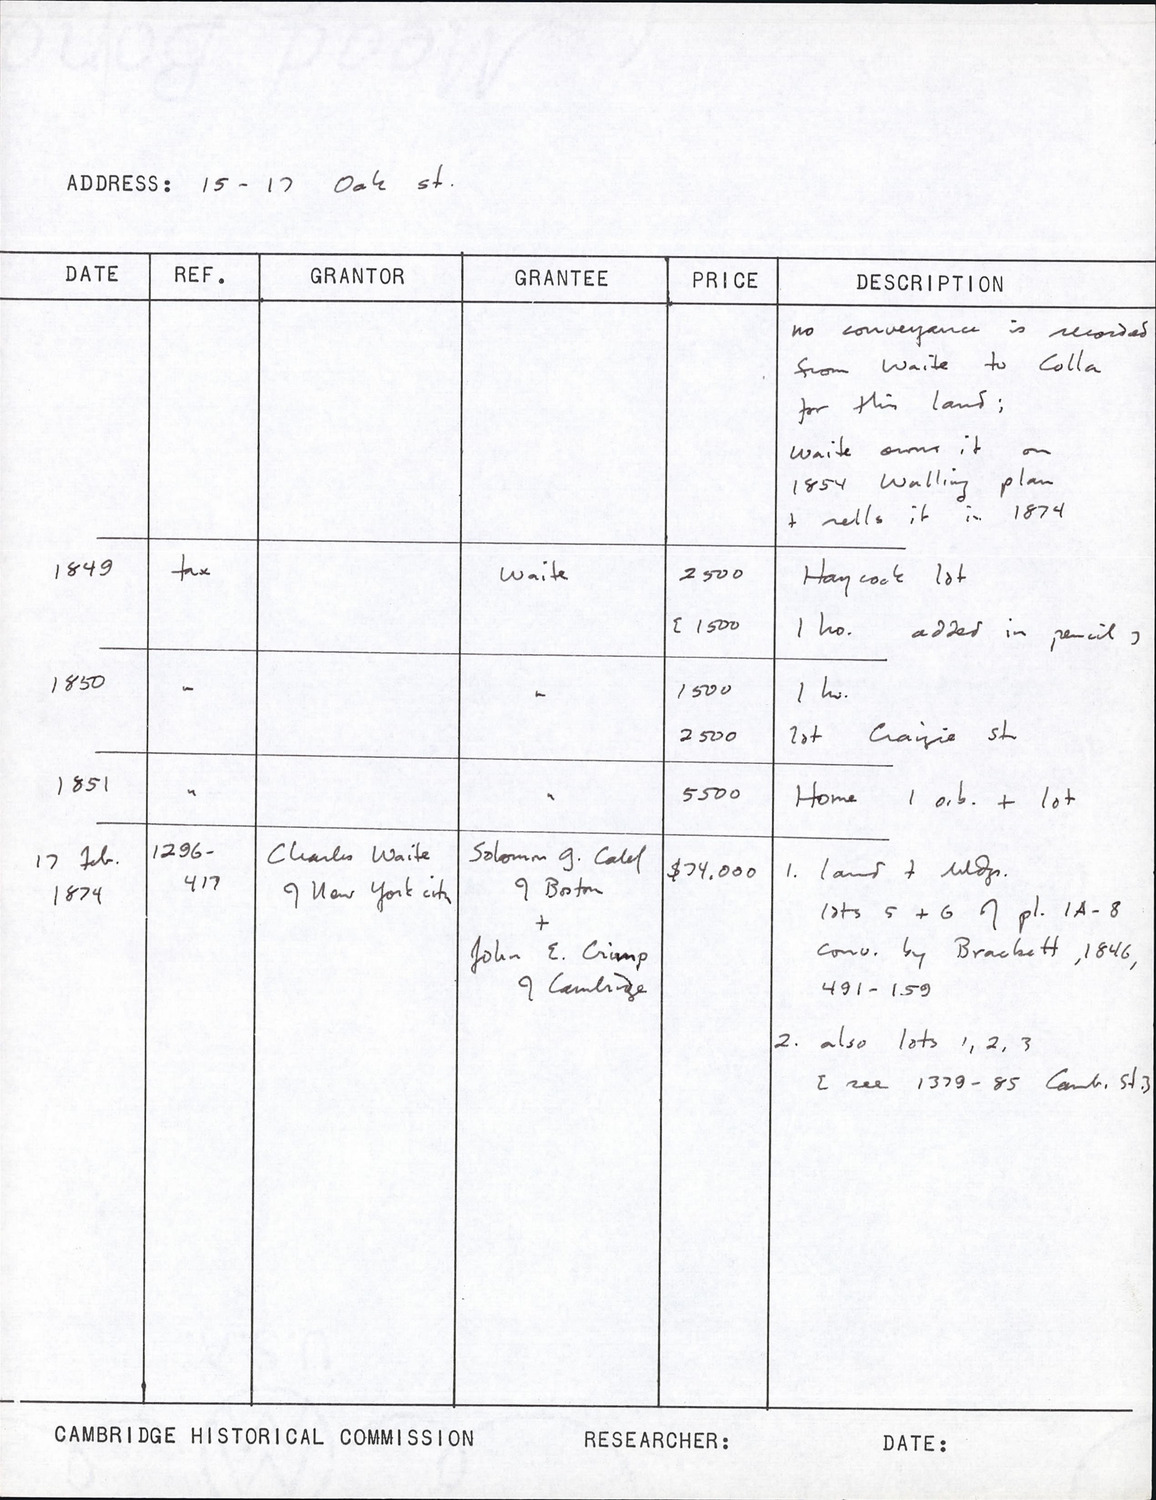 ADDRESS: 15-17 Oak st.
DATE REF. GRANTOR GRANTEE PRICE DESCRIPTION
no conveyance is recorded
from Waite to Colla
for this land;
Waite owns it on
1854 Walling plan
+ sells it in 1874
1849 tax Waite 2500 Haycock lot
[ 1500 1 ho. added in pencil ]
1850 " " 1500 1 ho.
2500 lot Craigie st
1851 " " 5500 Home 1 o.b. + lot
17 Feb. 1296- Charles Waite Solomon J. Calef $74,000 1. land + bldgs.
1874 417 of New York city of Boston
lots 5 + 6 of pl. 1A-8
+
conv. by Brackett, 1846,
John E. Crimp
of Cambridge 491-159
2. also lots 1, 2, 3
[ see 1379-85 Camb. St. ]
CAMBRIDGE HISTORICAL COMMISSION RESEARCHER: DATE: